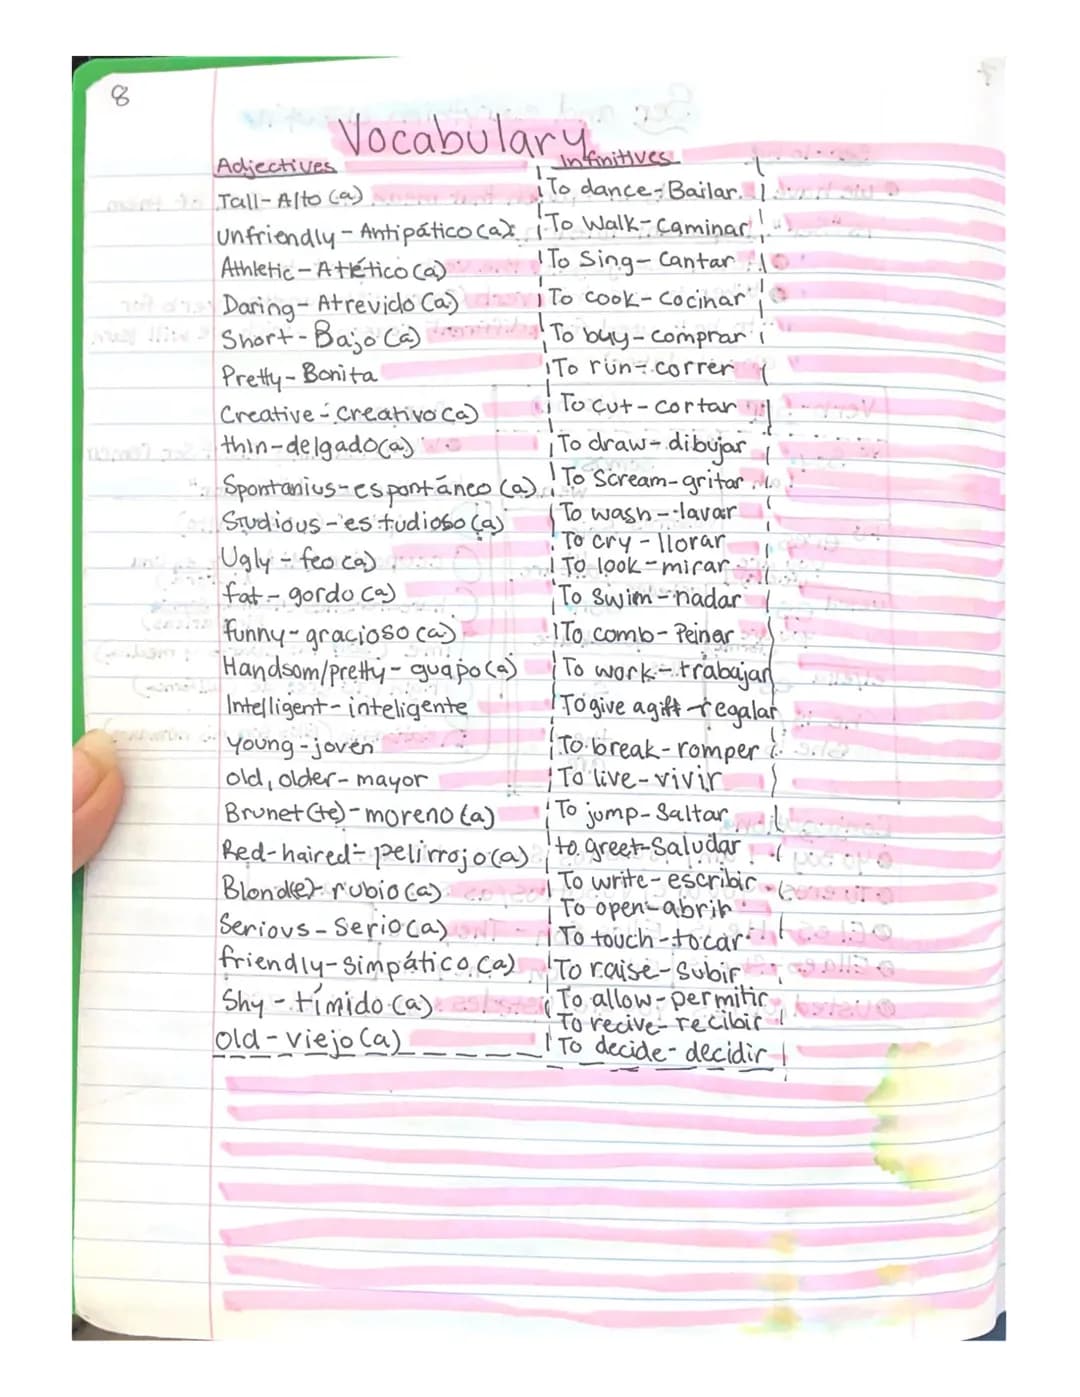 8
Vocabulary
Adjectives
Tall - Alto (a)
Unfriendly - Antipático (a)
Athletic - Atlético (a)
Daring - Atrevido (a)
Short - Bajo (a)
Pretty - Bonita
Creative - Creativo (a)
thin - delgado (a)
Spontanius - espontáneo (a)
Studious - estudioso (a)
Ugly - feo (a)
fat - gordo (a)
funny - gracioso (a)
Handsom/pretty - guapo (a)
Intelligent - inteligente
young - joven
old, older - mayor
Brunet(te) - moreno (a)
Red-haired - pelirrojo (a)
Blond(e) - rubio (a)
Serious - Serio (a)
friendly - Simpático (a)
Shy - tímido (a)
old - viejo (a)
Infinitives
To dance - Bailar
To Walk - Caminar
To Sing - Cantar
To cook - Cocinar
To buy - comprar
To run - correr
To cut - cortar
To draw - dibujar
To Scream - gritar
To wash - lavar
To cry - llorar
To look - mirar
To Swim - nadar
To comb - Peinar
To work - trabajar
To give a gift - regalar
To break - romper
To live - vivir
To jump - Saltar
to greet - Saludar
To write - escribir
To open - abrir
To touch - tocar
To raise - Subir
To allow - permitir
To recive - recibir
To decide - decidir